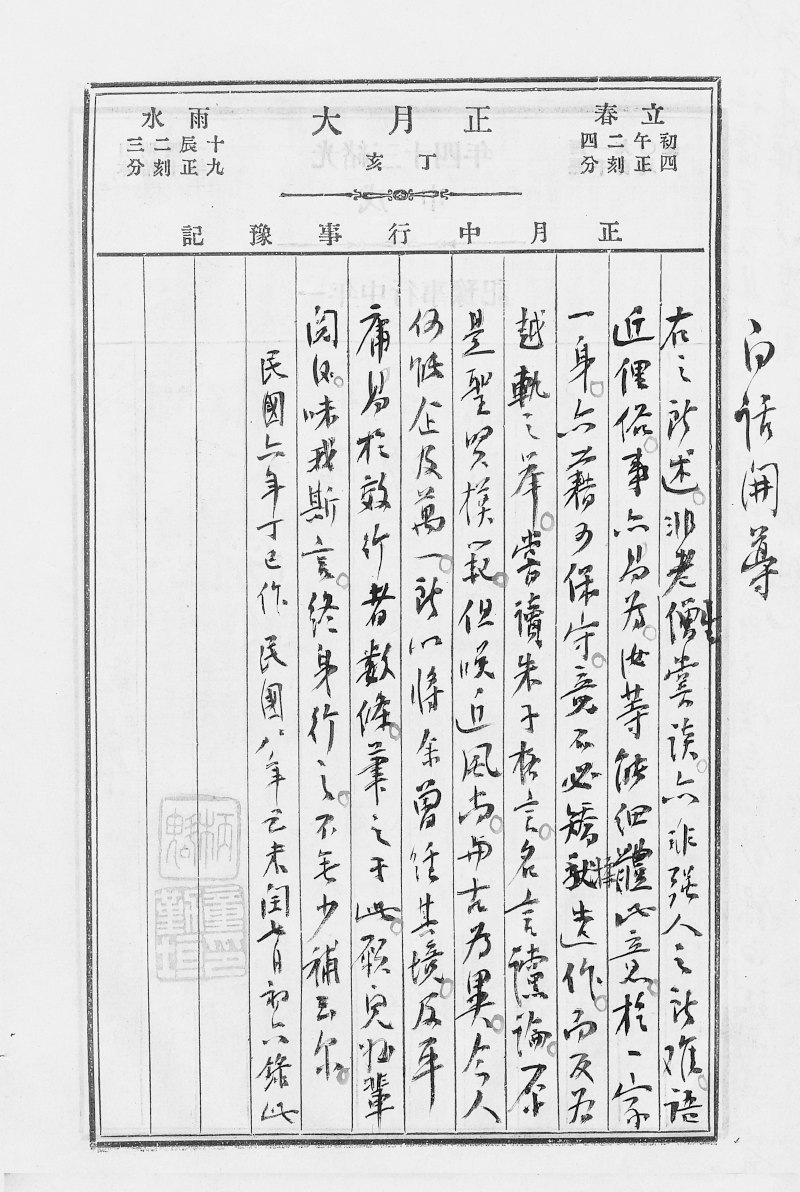 白話開導
立春 初四午正二刻四分
正月大
丁亥
雨水 十九辰正二刻三分
正月中行事豫記
右之所述。非老生僧常談。亦非強人之所難。語
近俚俗。事亦易為。汝等能細體此意。於一家
一身。亦藉可保守。竟不必矯造作。而反為
越軌之舉。嘗讀朱子格言。名言讜論。原
是聖賢模範。但嘆近風尚。與古為異。今人
何能企及萬一。所以將余曾經其境。及平
庸易於效行者數條。筆之于此。願兒姪輩
閱後。味我斯言。終身行之。不無少補云尔。
民國六年丁巳作 民國八年己未閏七月初六錄此